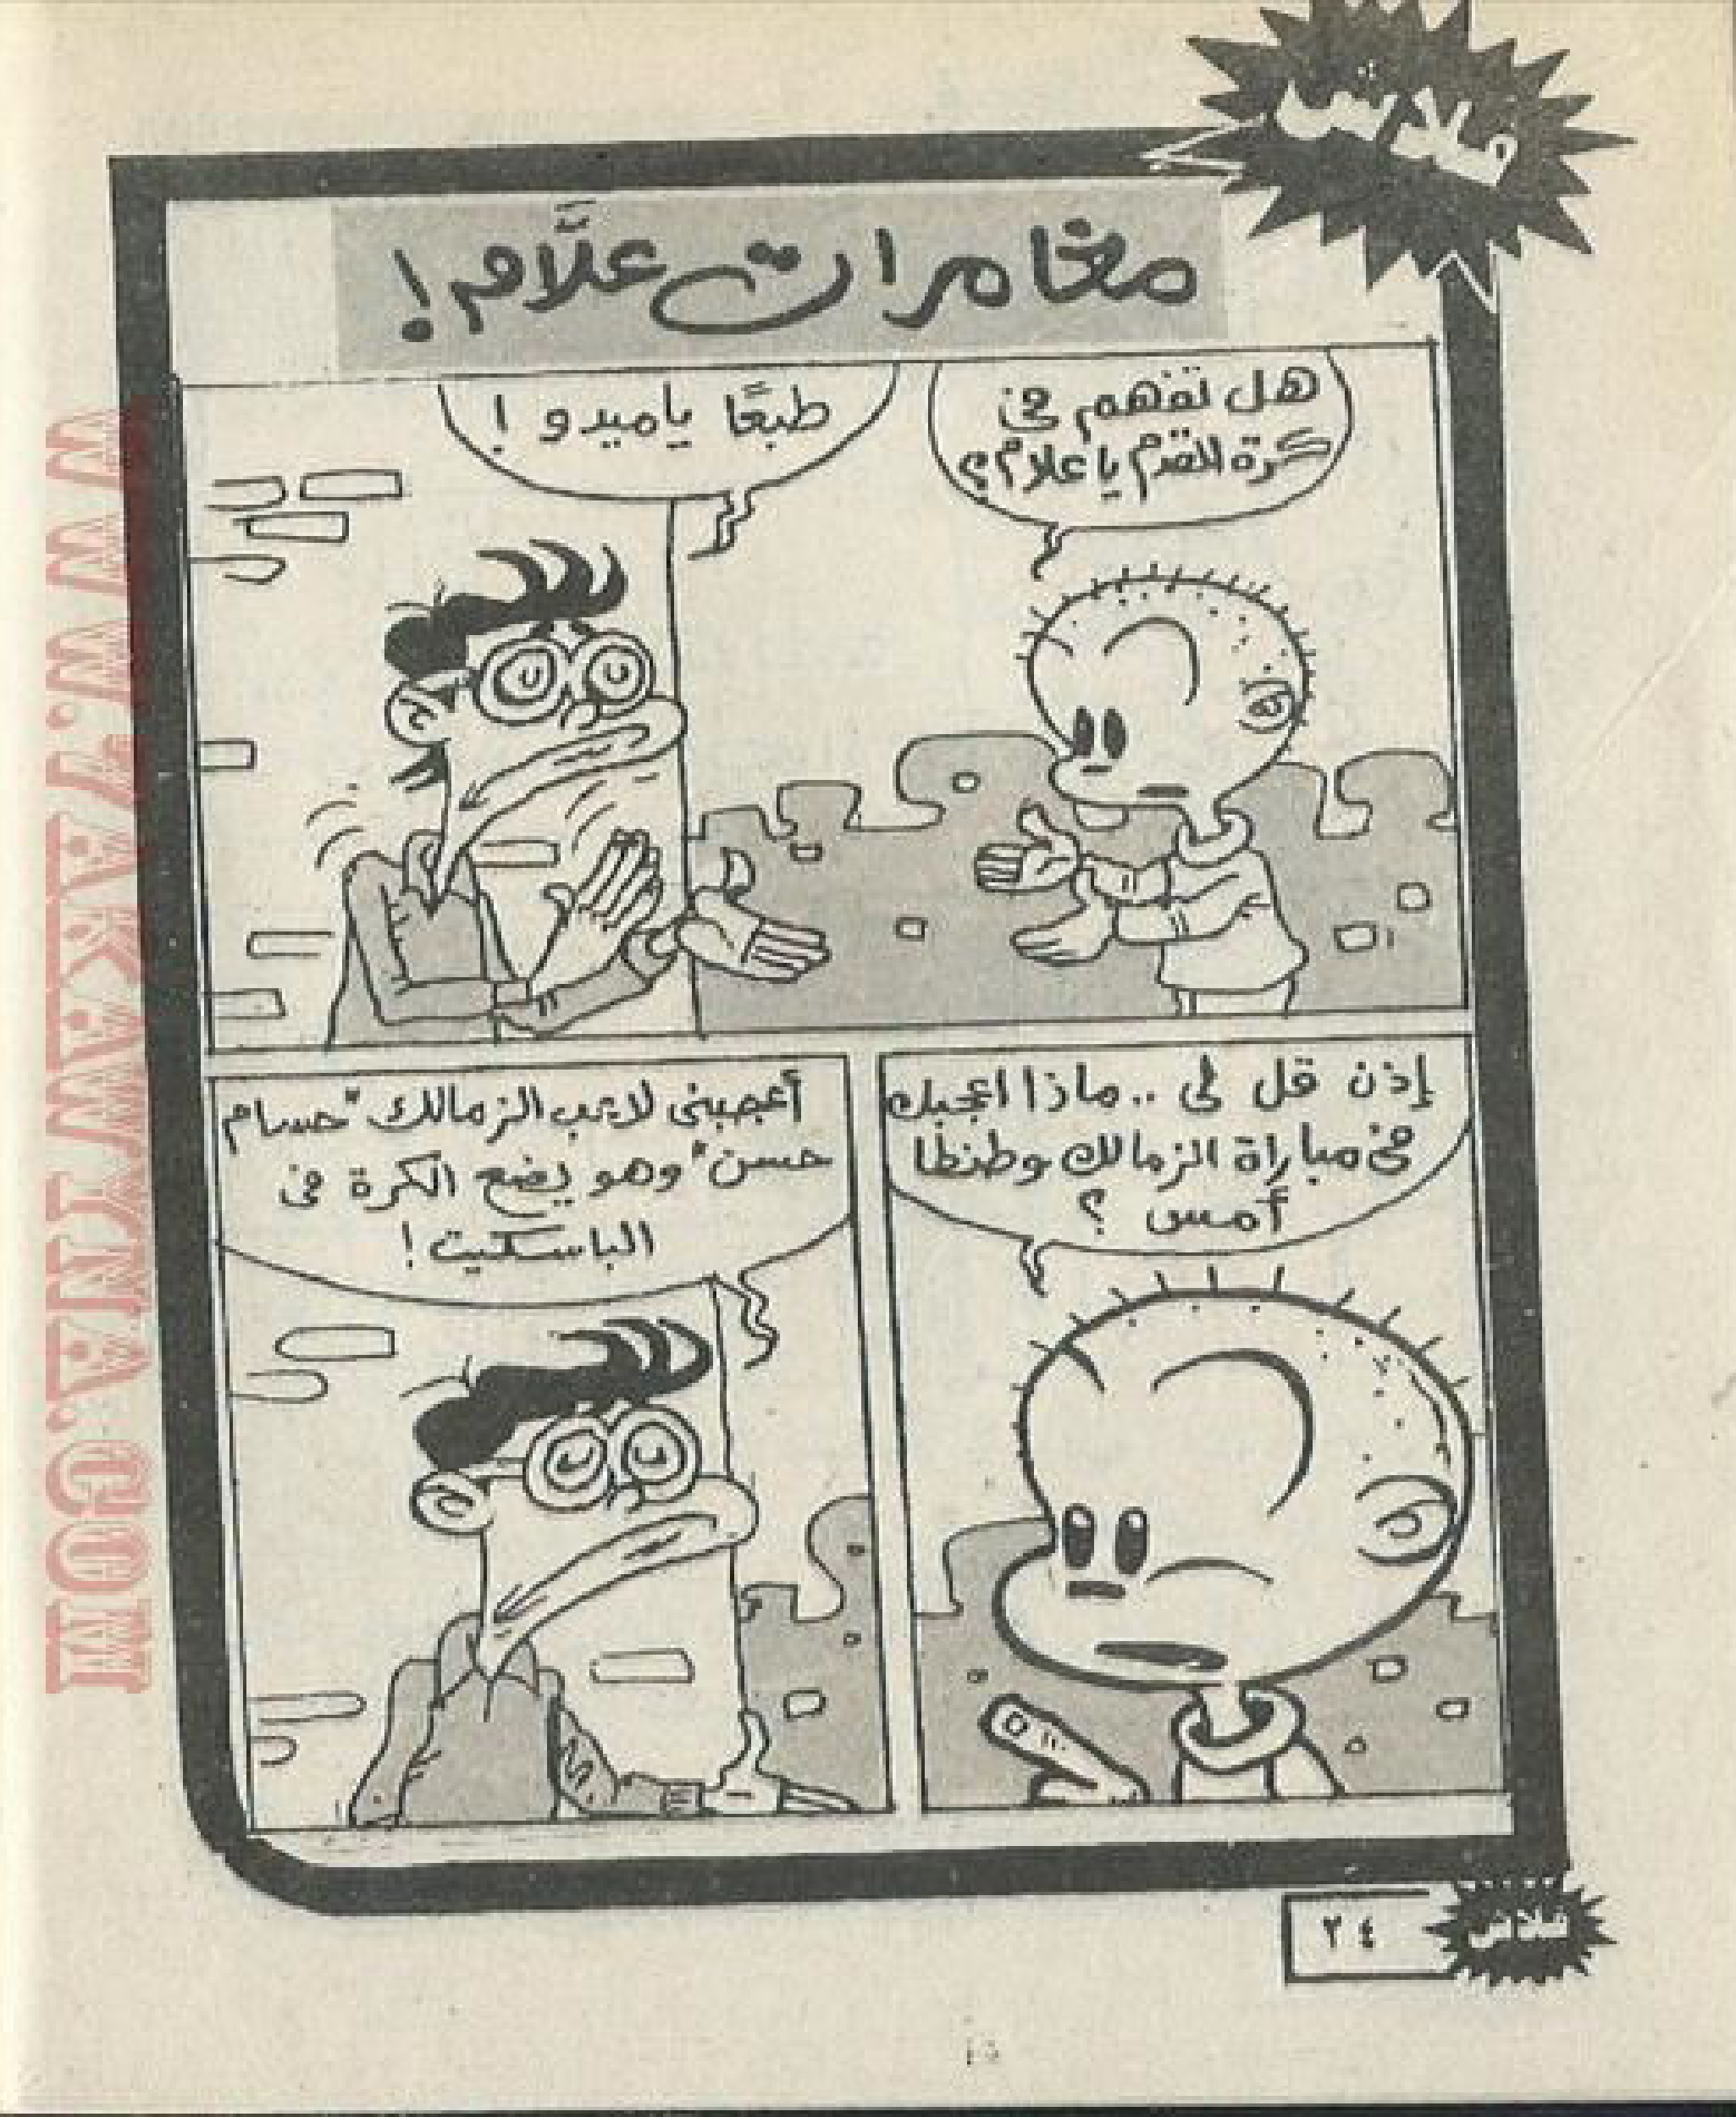 فلاش
مغامرات علَّام !
هل تفهم فى
كرة القدم يا علام ؟
طبعًا ياميدو !
إذن قل لى .. ماذا اعجبك
فى مباراة الزمالك وطنطا
أمس ؟
أعجبنى لاعب الزمالك "حسام
حسن" وهو يضع الكرة فى
الباسكيت !
WWW.TAKAWTNNA.COM
٢٤
فلاش